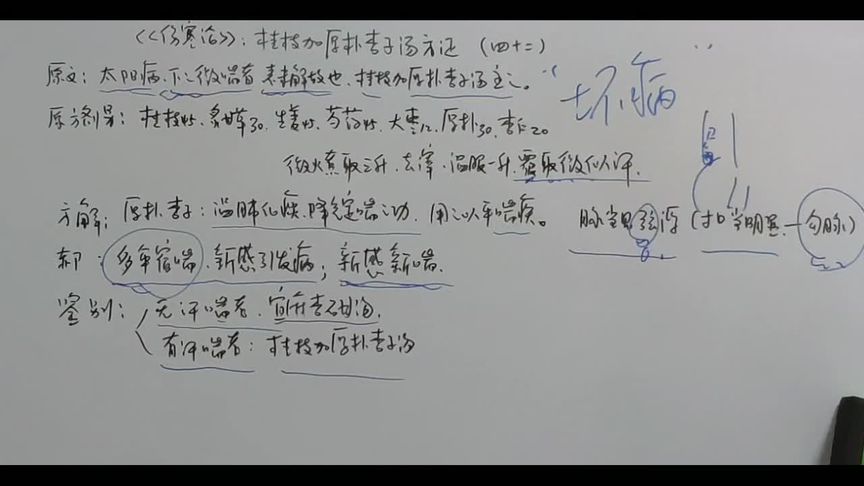 《伤寒论》：桂枝加厚朴杏子汤方证（四十二）
原文：太阳病，下之微喘者，表未解故也，桂枝加厚朴杏子汤主之。
“坏病
原方剂量：桂枝45、炙甘草30、生姜45、芍药45、大枣12、厚朴30、杏仁20
微火煮取三升，去滓，温服一升，覆取微似汗。
方解：厚朴杏子：温肺化痰、降气定喘之功，用之以平喘疾。
脉当见弦浮（寸口当明显—勾脉）
郝：多年宿喘，新感引发病；新感新喘。
鉴别：无汗喘者，宜麻杏石甘汤，
有汗喘者：桂枝加厚朴杏子汤